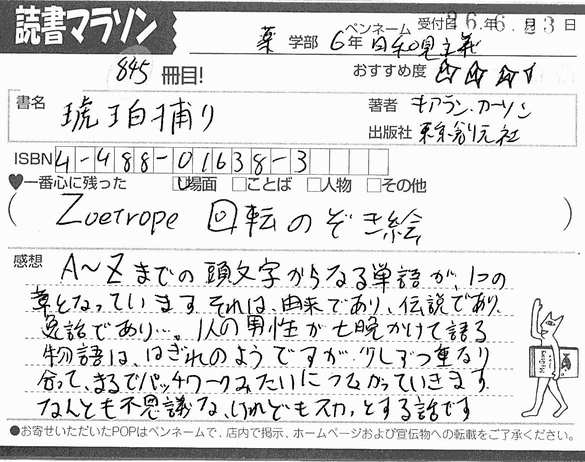 読書マラソン
ペンネーム 受付日 26.年6.月3日
薬 学部 6年 日和見主義
845 冊目! おすすめ度 ☆☆☆☆
書名 琥珀捕り
著者 キアラン・カーソン
出版社 東京創元社
ISBN 4-488-01638-3
♥一番心に残った □場面 □ことば □人物 □その他
( Zoetrope 回転のぞき絵 )
感想 A~Zまでの頭文字からなる単語が、1つの
章となっています。それは、由来であり、伝説であり、
逸話であり…。1人の男性が七晩かけて語る
物語は、はぎれのようですが、少しずつ重なり
合って、まるでパッチワークみたいにつながっていきます。
なんとも不思議な、けれどもスカッとする話です
●お寄せいただいたPOPはペンネームで、店内で掲示、ホームページおよび宣伝物への転載をご了承ください。